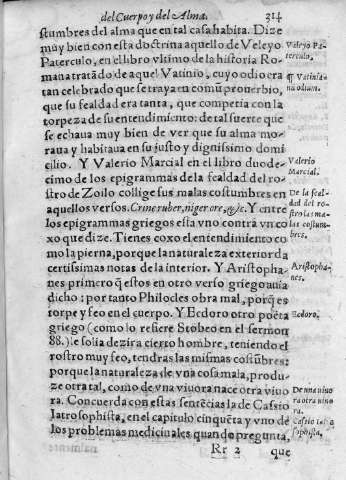 del Cuerpo y del Alma. 314
stumbres del alma que en tal casa habita. Dize
muy bien con esta doctrina aquello de Veleyo
Paterculo, en el libro vltimo de la historia Ro-
mana tratãdo de aquel Vatinio, cuyo odio era
tan celebrado que se traya en comũ prouerbio,
que su fealdad era tanta, que competia con la
torpeza de su entendimiento: de tal suerte que
se echaua muy bien de ver que su alma mo-
raua y habitaua en su justo y dignissimo domi
cilio. Y Valerio Marcial en el libro duode-
cimo de los epigrammas de la fealdad del ro-
stro de Zoilo collige sus malas costumbres en
aquellos versos. Crine ruber, niger ore, &c. Y entre
los epigrammas griegos esta vno contra vn co
xo que dize. Tienes coxo el entendimiento co
mo la pierna, porque la naturaleza exterior da
certissimas notas de la interior. Y Aristopha-
nes primero q̃ estos en otro verso griego auia
dicho: por tanto Philocles obra mal, porq̃ es
torpe y feo en el cuerpo. Y Ecdoro otro poëta
griego (como lo refiere Stobeo en el sermon
88.) le solia dezir a cierto hombre, teniendo el
rostro muy feo, tendras las mismas costũbres:
porque la naturaleza de vna cosa mala, produ-
ze otra tal, como de vna viuora nace otra viuo
ra. Concuerda con estas sentẽcias la de Cassio
Iatrosophista, en el capitulo cinquẽta y vno de
los problemas medicinales quando pregunta,
Rr 2 que
Veleyo Pa-
terculo.
¶ Vatinia-
na odium.
Valerio
Marcial.
De la feal-
dad del ro-
stro las ma-
las costum-
bres.
Aristopha-
nes.
Ecdoro.
De vna viuo
ra otra viuo
ra.
Cassio
sophista.